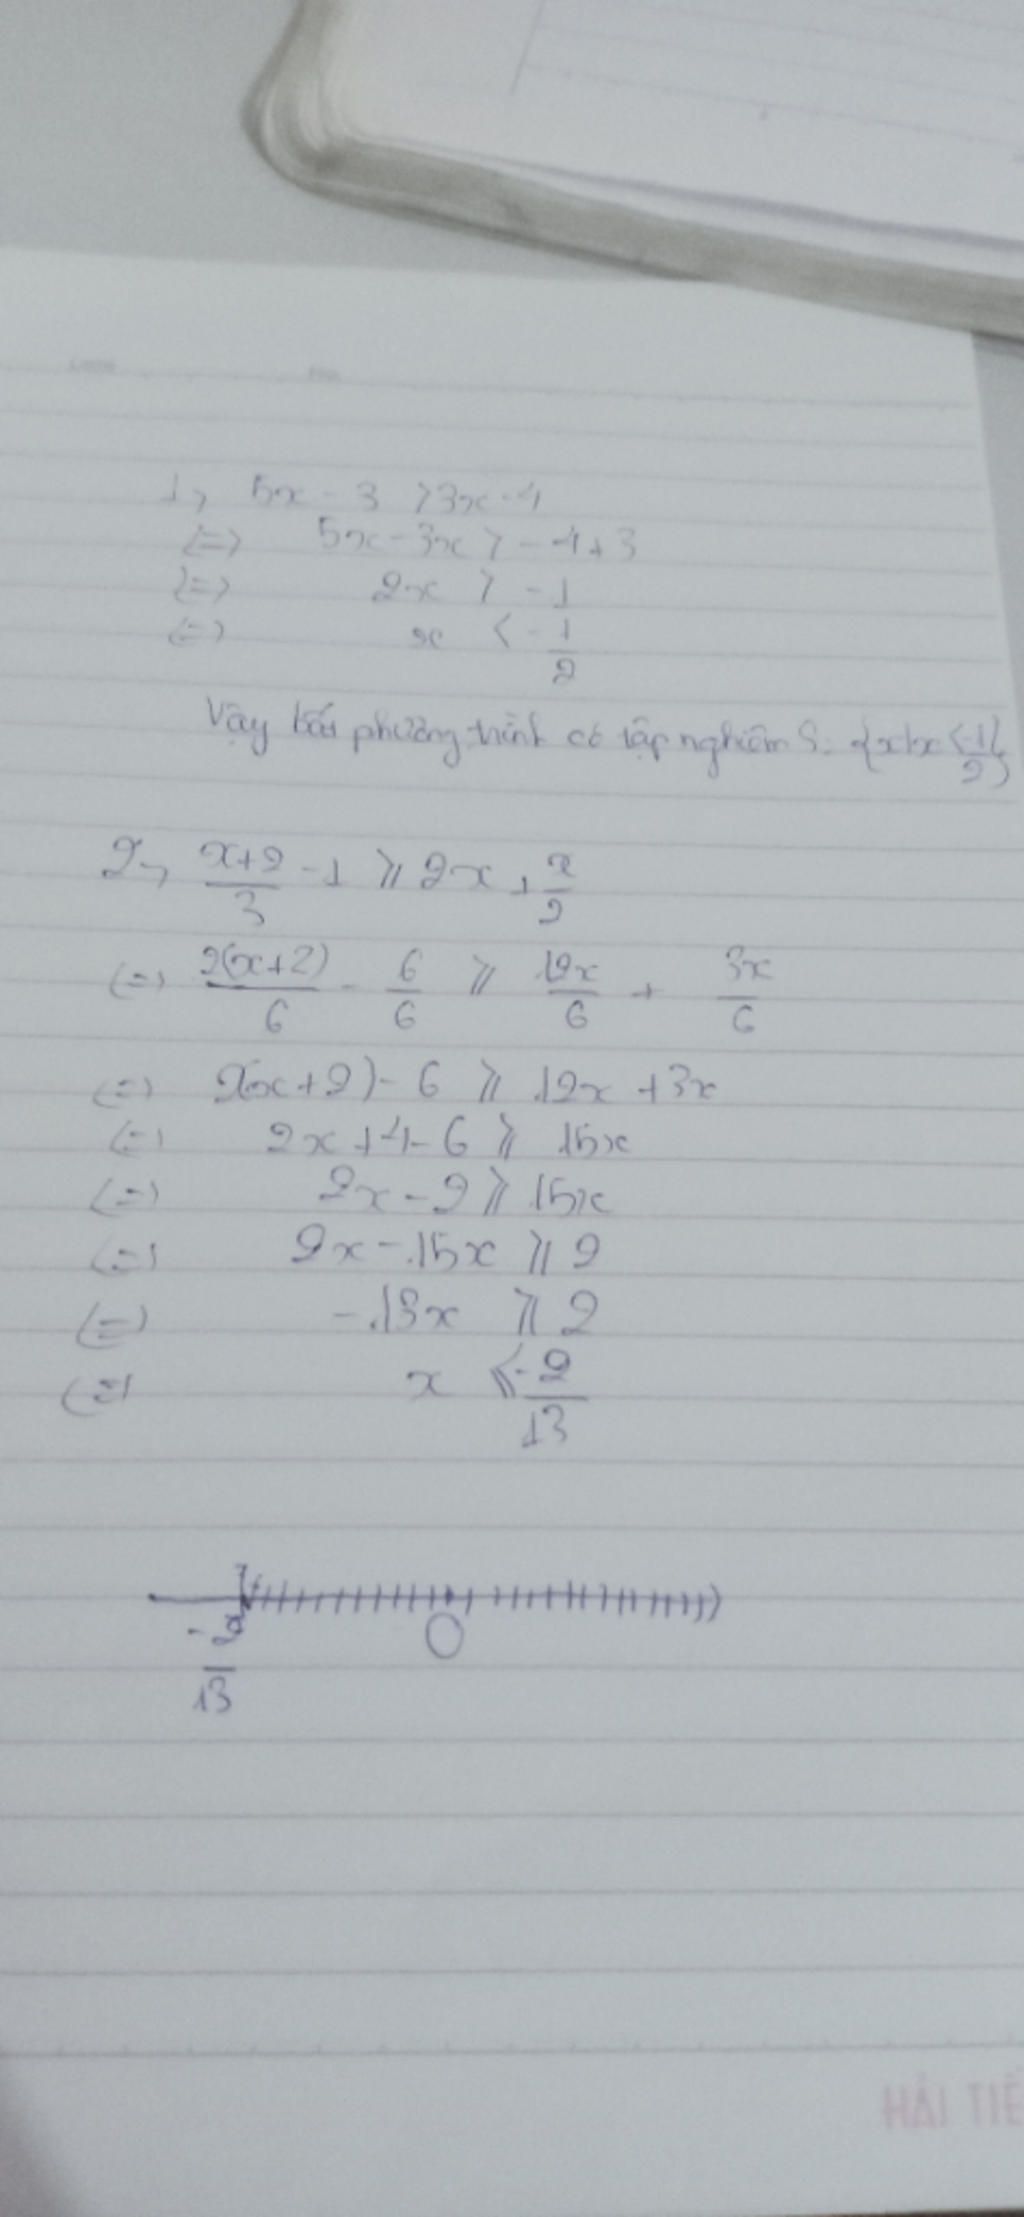 1, 5x - 3 > 3x - 4
(=) 5x - 3x > - 4 + 3
(=) 2x > - 1
(=) x < - 1/2
Vậy bất phương trình có tập nghiệm S = {x | x < -1/2}
2, (x+2)/3 - 1 ⩾ 2x + x/2
(=) 2(x+2)/6 - 6/6 ⩾ 12x/6 + 3x/6
(=) 2(x+2) - 6 ⩾ 12x + 3x
(=) 2x + 4 - 6 ⩾ 15x
(=) 2x - 2 ⩾ 15x
(=) 2x - 15x ⩾ 2
(=) - 13x ⩾ 2
(=) x ⩽ -2/13
-2/13 O
HẢI TIẾ